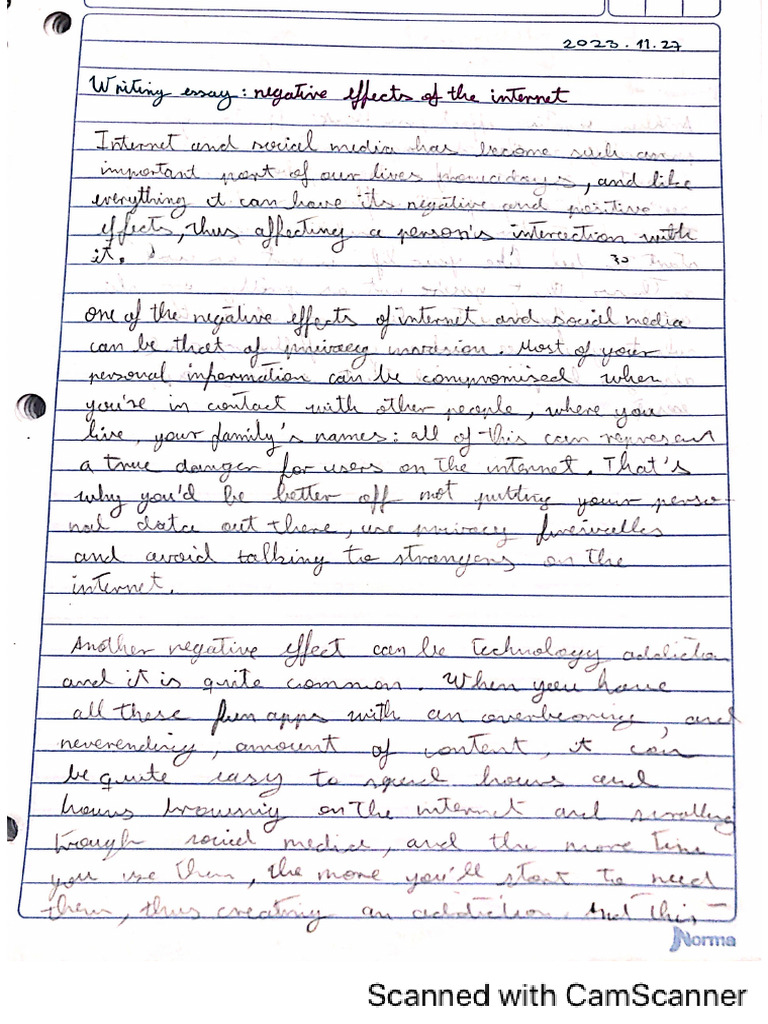 2023.11.27
Writing essay: negative effects of the internet
Internet and social media has become such an
important part of our lives nowadays, and like
everything it can have its negative and positive
effects, thus affecting a person's interection with
it.
30
One of the negative effects of internet and social media
can be that of privacy invasion. Most of your
personal information can be compromised when
you're in contact with other people, where you
live, your family's names: all of this can represent
a true danger for users on the internet. That's
why you'd be better off not putting your perso-
nal data out there, use privacy firewalls
and avoid talking to strangers on the
internet.
Another negative effect can be technology addiction
and it is quite common. When you have
all these fun apps with an overbearing, and
neverending, amount of content, it can
be quite easy to spend hours and
hours browsing on the internet and scrolling
trough social media, and the more time
you use them, the more you'll start to need
them, thus creating an addiction. And this
Norma
Scanned with CamScanner